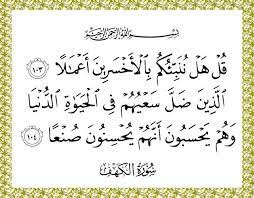 بِسْمِ اللَّهِ الرَّحْمَٰنِ الرَّحِيمِ
قُلْ هَلْ نُنَبِّئُكُم بِالْأَخْسَرِينَ أَعْمَالًا ١٠٣
الَّذِينَ ضَلَّ سَعْيُهُمْ فِي الْحَيَوٰةِ الدُّنْيَا
وَهُمْ يَحْسَبُونَ أَنَّهُمْ يُحْسِنُونَ صُنْعًا ١٠٤
سُورَة الكَهْف